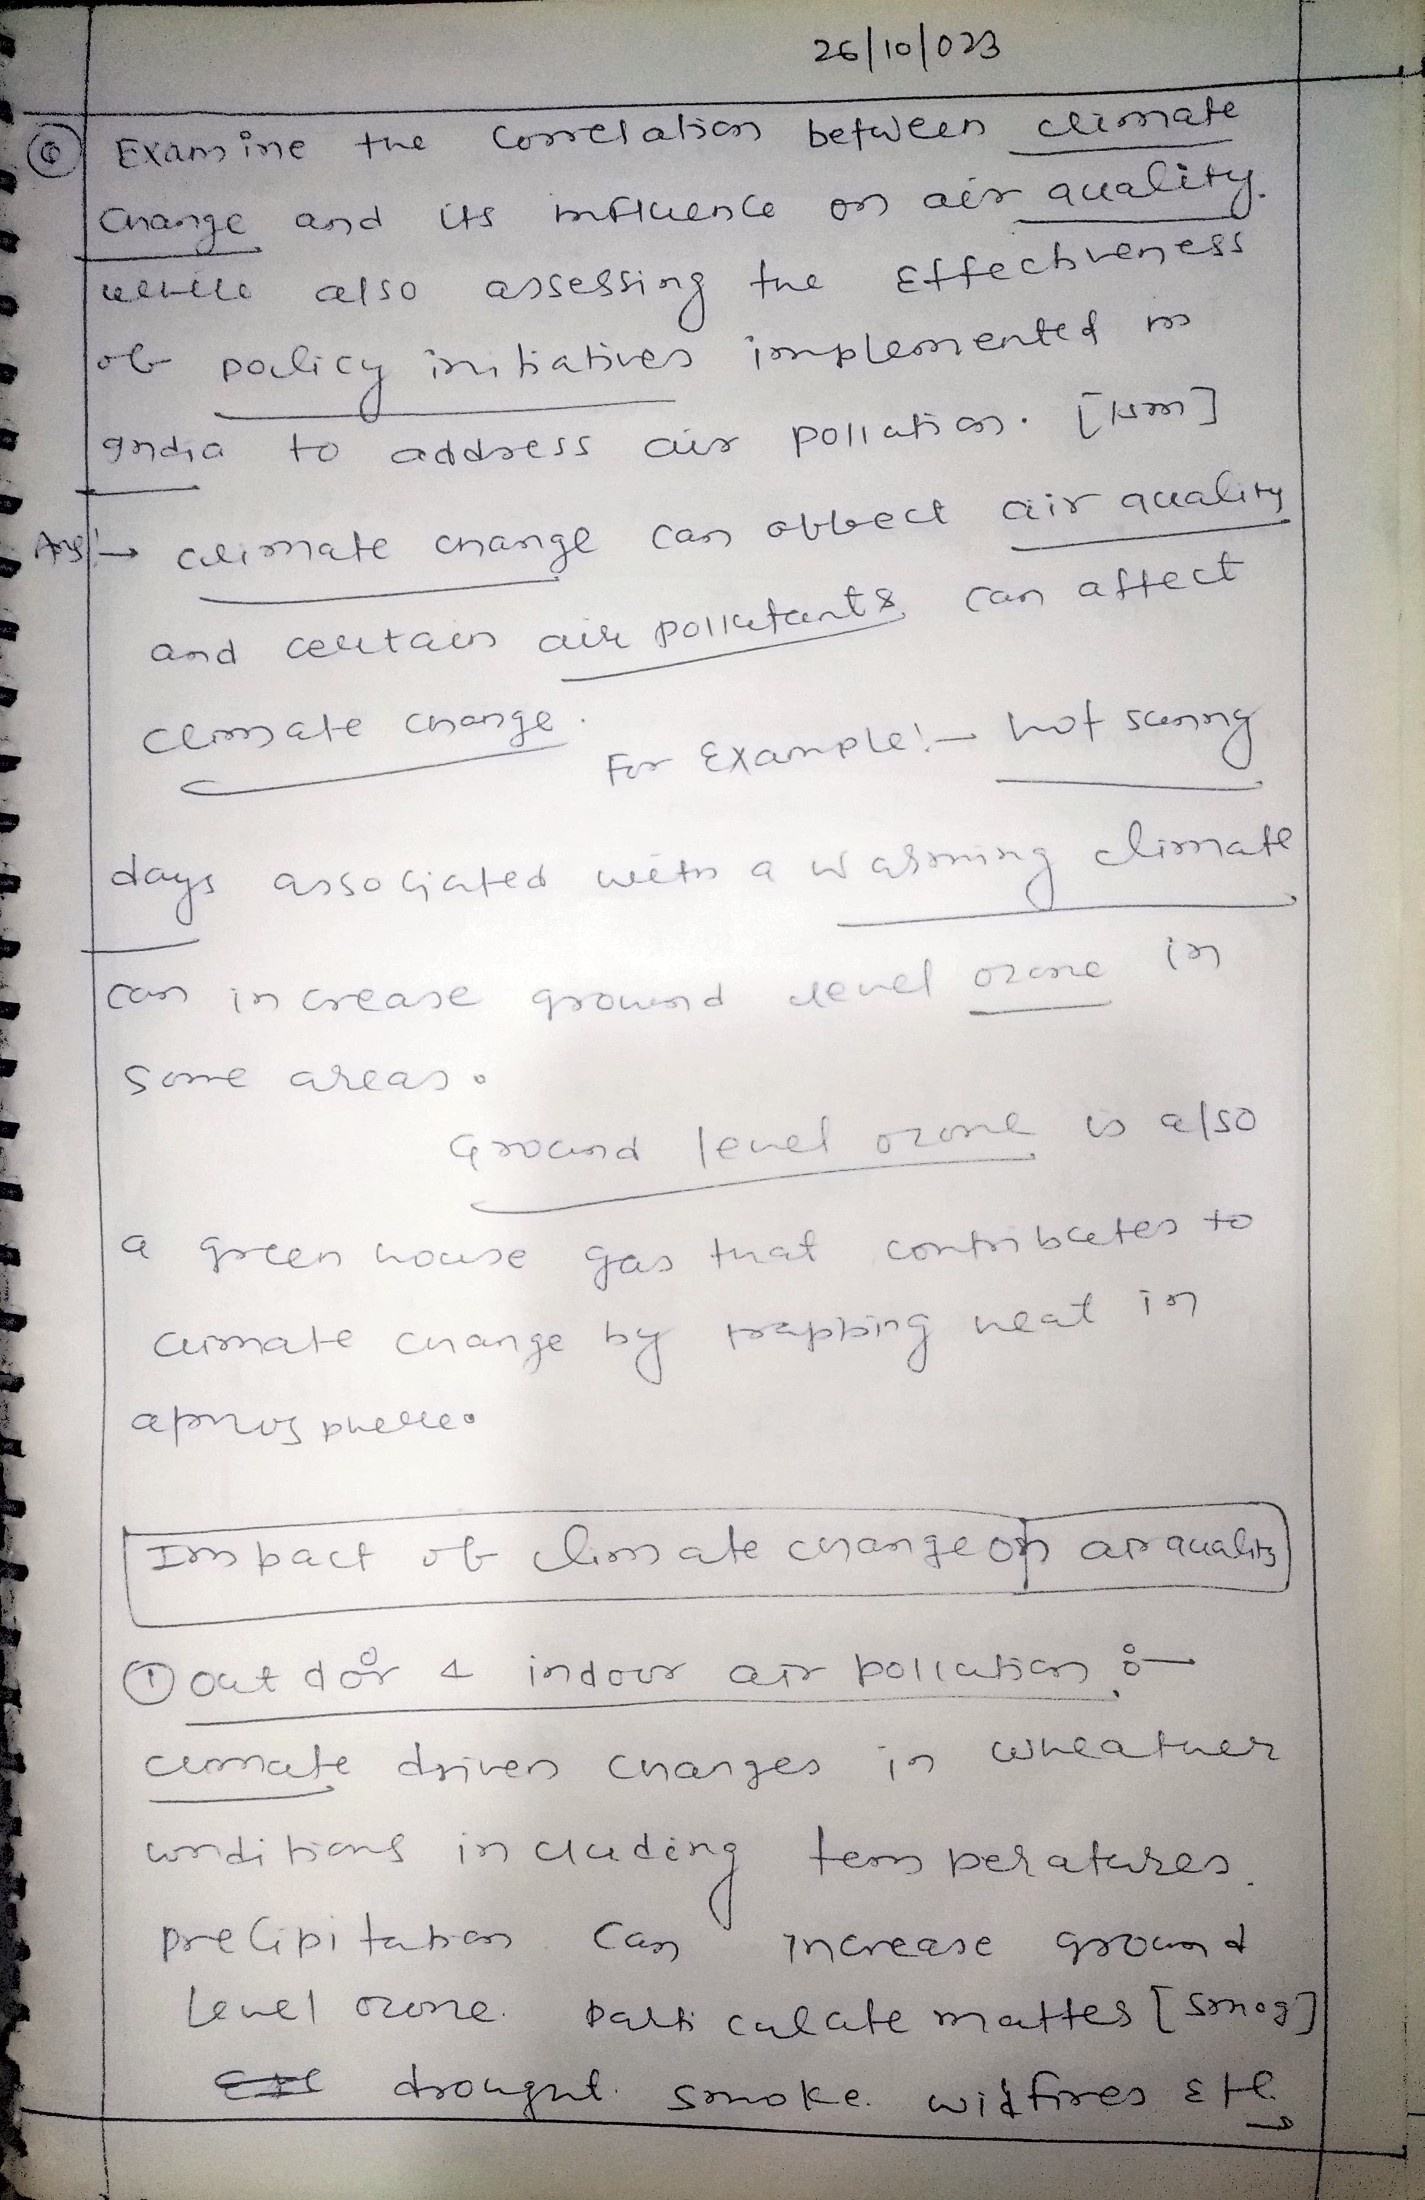 26/10/023
6 Examine the Correlation between climate
change and its influence on air quality.
while also assessing the Effectiveness
of policy initiatives implemented in
India to address air pollution. [15m]
Ans:→ climate change can affect air quality
and certain air pollutants can affect
climate change.
For Example:- hot sunny
days associated with a warming climate
can increase ground level ozone in
some areas.
Ground level ozone is also
a green house gas that contributes to
climate change by trapping heat in
atmosphere.
Impact of climate change on air quality
① out door & indoor air pollution :-
climate driven changes in wheather
conditions including temperatures.
precipitation can increase ground
level ozone. particulate matter [smog]
drought. smoke. widfires Etc.